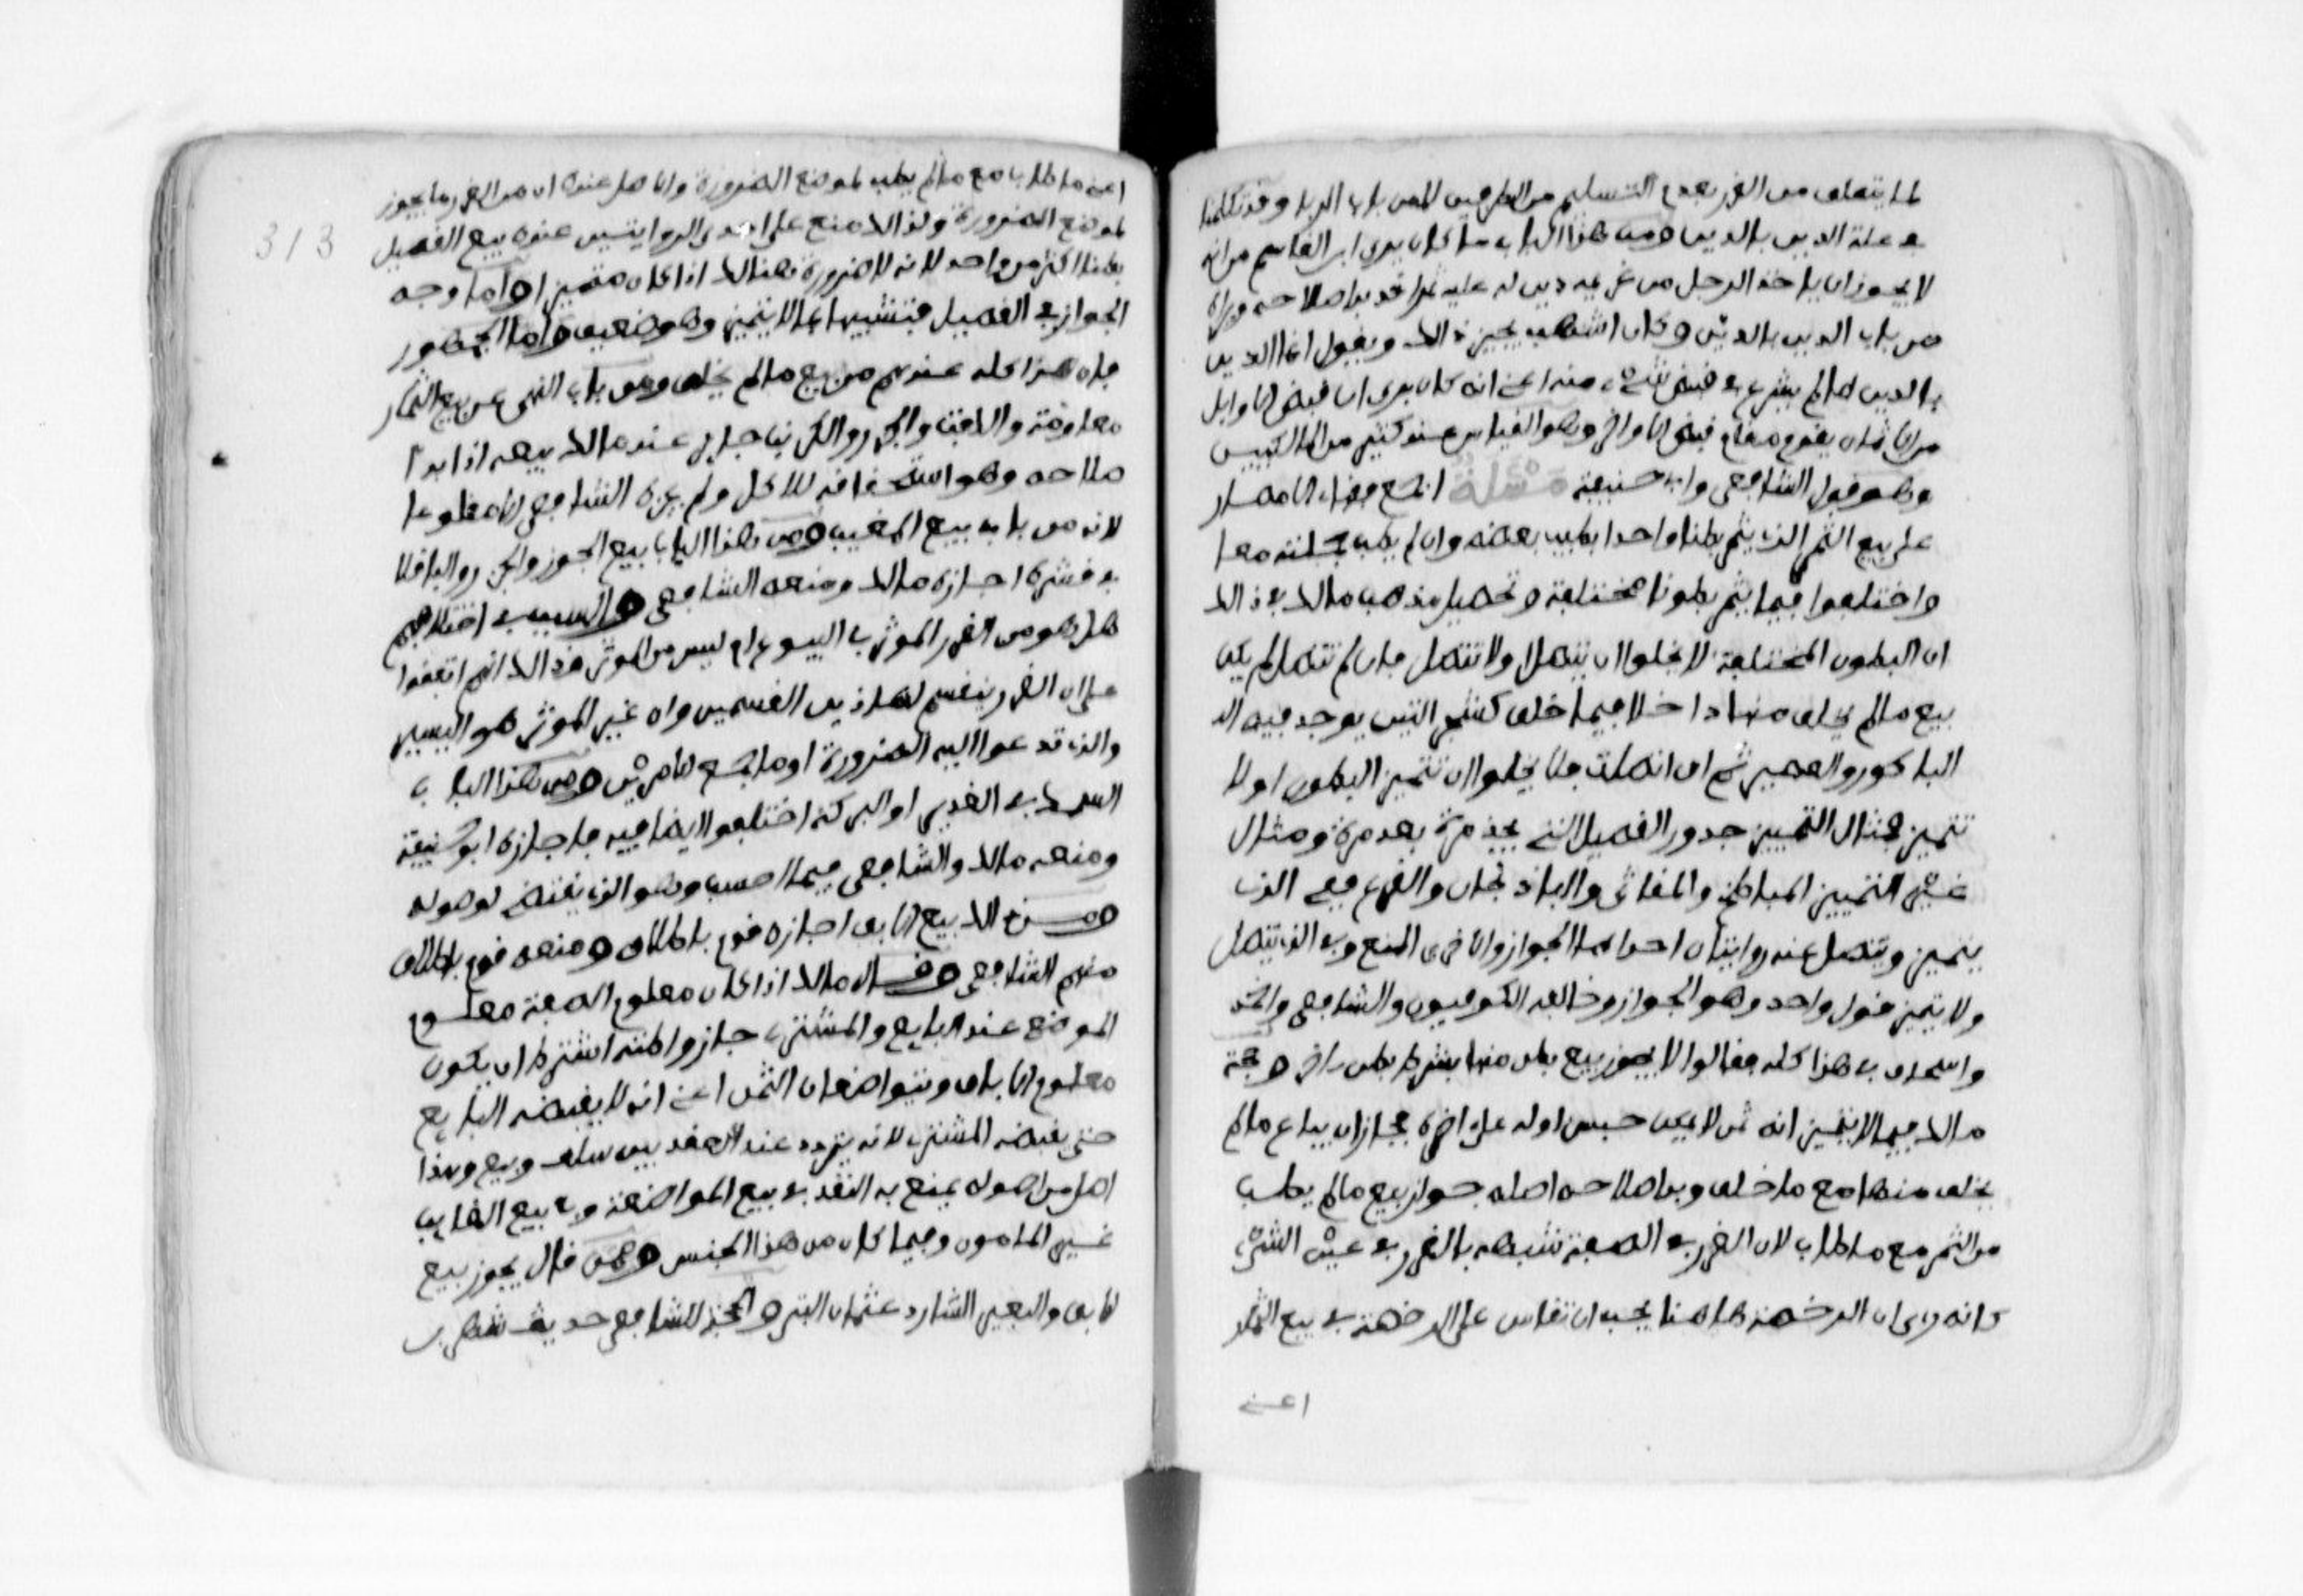 لما يتعلق من الغرر بعدم التسليم من الطرفين لا من باب الربا وقد تكلمنا
في علة الدين بالدين ومن هذا الباب ما كان يرى ابن القاسم من انه
لا يجوز ان ياخذ الرجل من غريمه دين له عليه ثمرا قد بدا صلاحه ويراه
من باب الدين بالدين وكان اشهب يجيز ذالك ويقول انما الدين
بالدين ما لم يشرع في قبض شيء منه اعني انه كان يرى ان قبض الاوايل
من الاثمان يقوم مقام قبض الاواخر وهو القياس عند كثير من المالكيين
وهو قول الشافعي وابي حنيفة مسئلة اجمع فقهاء الامصار
على بيع الثمر الذي يثمر بطنا واحدا يطيب بعضه وان لم يطب جملته معا
واختلفوا فيما يثمر بطونا مختلفة وتحصيل مذهب مالك في ذالك
ان البطون المختلفة لا تخلوا ان تتصل ولا تتصل فان لم تتصل لم يكن
بيع ما لم يخلق منها داخلا فيما خلق كشجر التين يوجد فيه الـ
الباكور والعصير ثم ان اتصلت فلا يخلوا ان تتميز البطون او لا
تتميز فمثال المتميز جدور القصيل الذي يجذ مرة بعد مرة ومثال
غير المتميز المباطخ والمقاثي والباذنجان والقرع ففي الذي
يتميز ويتصل عنه روايتان احداهما الجواز والاخرى المنع وفي الذي يتصل
ولا يتميز قول واحد وهو الجواز وخالفه الكوفيون والشافعي واحمد
واسحاق في هذا كله فقالوا لا يجوز بيع بطن منها بشرط بطن اخر وحجة
مالك فيما لا يتميز انه ثمر لا يمكن حبس اوله على اخره فجاز ان يباع ما لم
يخلق منها مع ما خلق وبدا صلاحه اصله جواز بيع ما لم يطب
من الثمر مع ما طاب لان الغرر في الصفة شبهه بالغرر في عين الشيء
كانه راى ان الرخصة هاهنا يجب ان تقاس على الرخصة في بيع الثمار
اعني
313
اعني ما طاب مع ما لم يطب لموضع الضرورة والاصل عنده ان من الغرر ما يجوز
لموضع الضرورة ولذالك منع على احدى الروايتين عنده بيع القصيل
بطنا اكثر من واحد لانه لا ضرورة هنالك اذا كان متميزا واما وجه
الجواز في القصيل فتشبيها بما لا يتميز وهو ضعيف واما الجمهور
فان هذا كله عندهم من بيع ما لم يخلق ومن باب النهي عن بيع الثمار
معاومة واللفت والجزر والكرنب جايز عند مالك بيعه اذا بدا
صلاحه وهو استحقاقه للاكل ولم يجزه الشافعي الا مقلوعا
لانه من باب بيع المغيب ومن هذا الباب بيع الجوز واللوز والباقلا
في قشره اجازه مالك ومنعه الشافعي والسبب في اختلافهم
هل هو من الغرر الموثر في البيوع ام ليس من الموثر وذالك انهم اتفقوا
على ان الغرر ينقسم لهاذين القسمين وان غير الموثر هو اليسير
والذي تدعوا اليه الضرورة او ما جمع الامرين ومن هذا الباب
السمك في الغدير او البركة اختلفوا ايضا فيه فاجازه ابو حنيفة
ومنعه مالك والشافعي فيما احسب وهو الذي يقتضي اصوله
ومن ذالك بيع الابق اجازه قوم باطلاق ومنعه قوم باطلاق
منهم الشافعي وقال مالك اذا كان معلوم الصفة معلوم
الموضع عند البايع والمشتري جاز واظنه اشترط ان يكون
معلوم الاباق ويتواضعان الثمن اعني انه لا يقبضه البايع
حتى يقبضه المشتري لانه يتردد عند العقد بين سلف وبيع وهذا
اصل من اصوله يمنع به النقد في بيع المواضعة وفي بيع الغايب
غير المامون وفيما كان من هذا الجنس وممن قال يجوز بيع
الابق والبعير الشارد عثمان البتي والحجة للشافعي حديث شهر بن